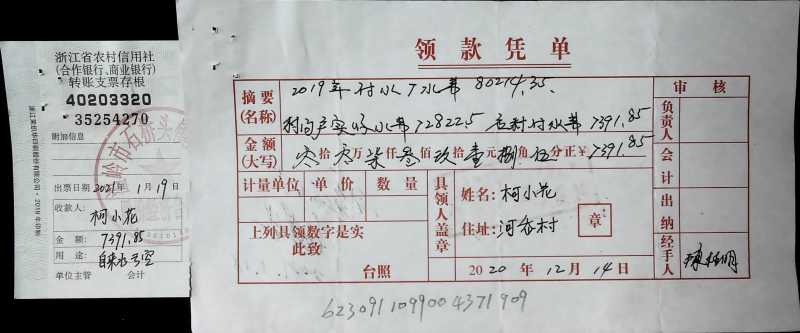 浙江省农村信用社
(合作银行、商业银行)
转账支票存根
40203320
35254270
附加信息
出票日期 2021年 1月 19日
收款人:
柯小花
金 额: 7391.85
用 途: 自来水亏空
单位主管 会计
领款凭单
摘要
(名称)
2019年村水厂水费 80214.35.
村向户实收水费 72822.5 应村付水费 7391.85
金额
(大写)
零拾零万柒仟叁佰玖拾壹元捌角伍分正¥7391.85
计量单位 单价 数量
上列具领数字是实
此致
台照
具领人盖章
姓名: 柯小花
住址: 河岙村
章
2020年 12月 14日
审核
负责人
会计
出纳
经手人
6230911099004371909